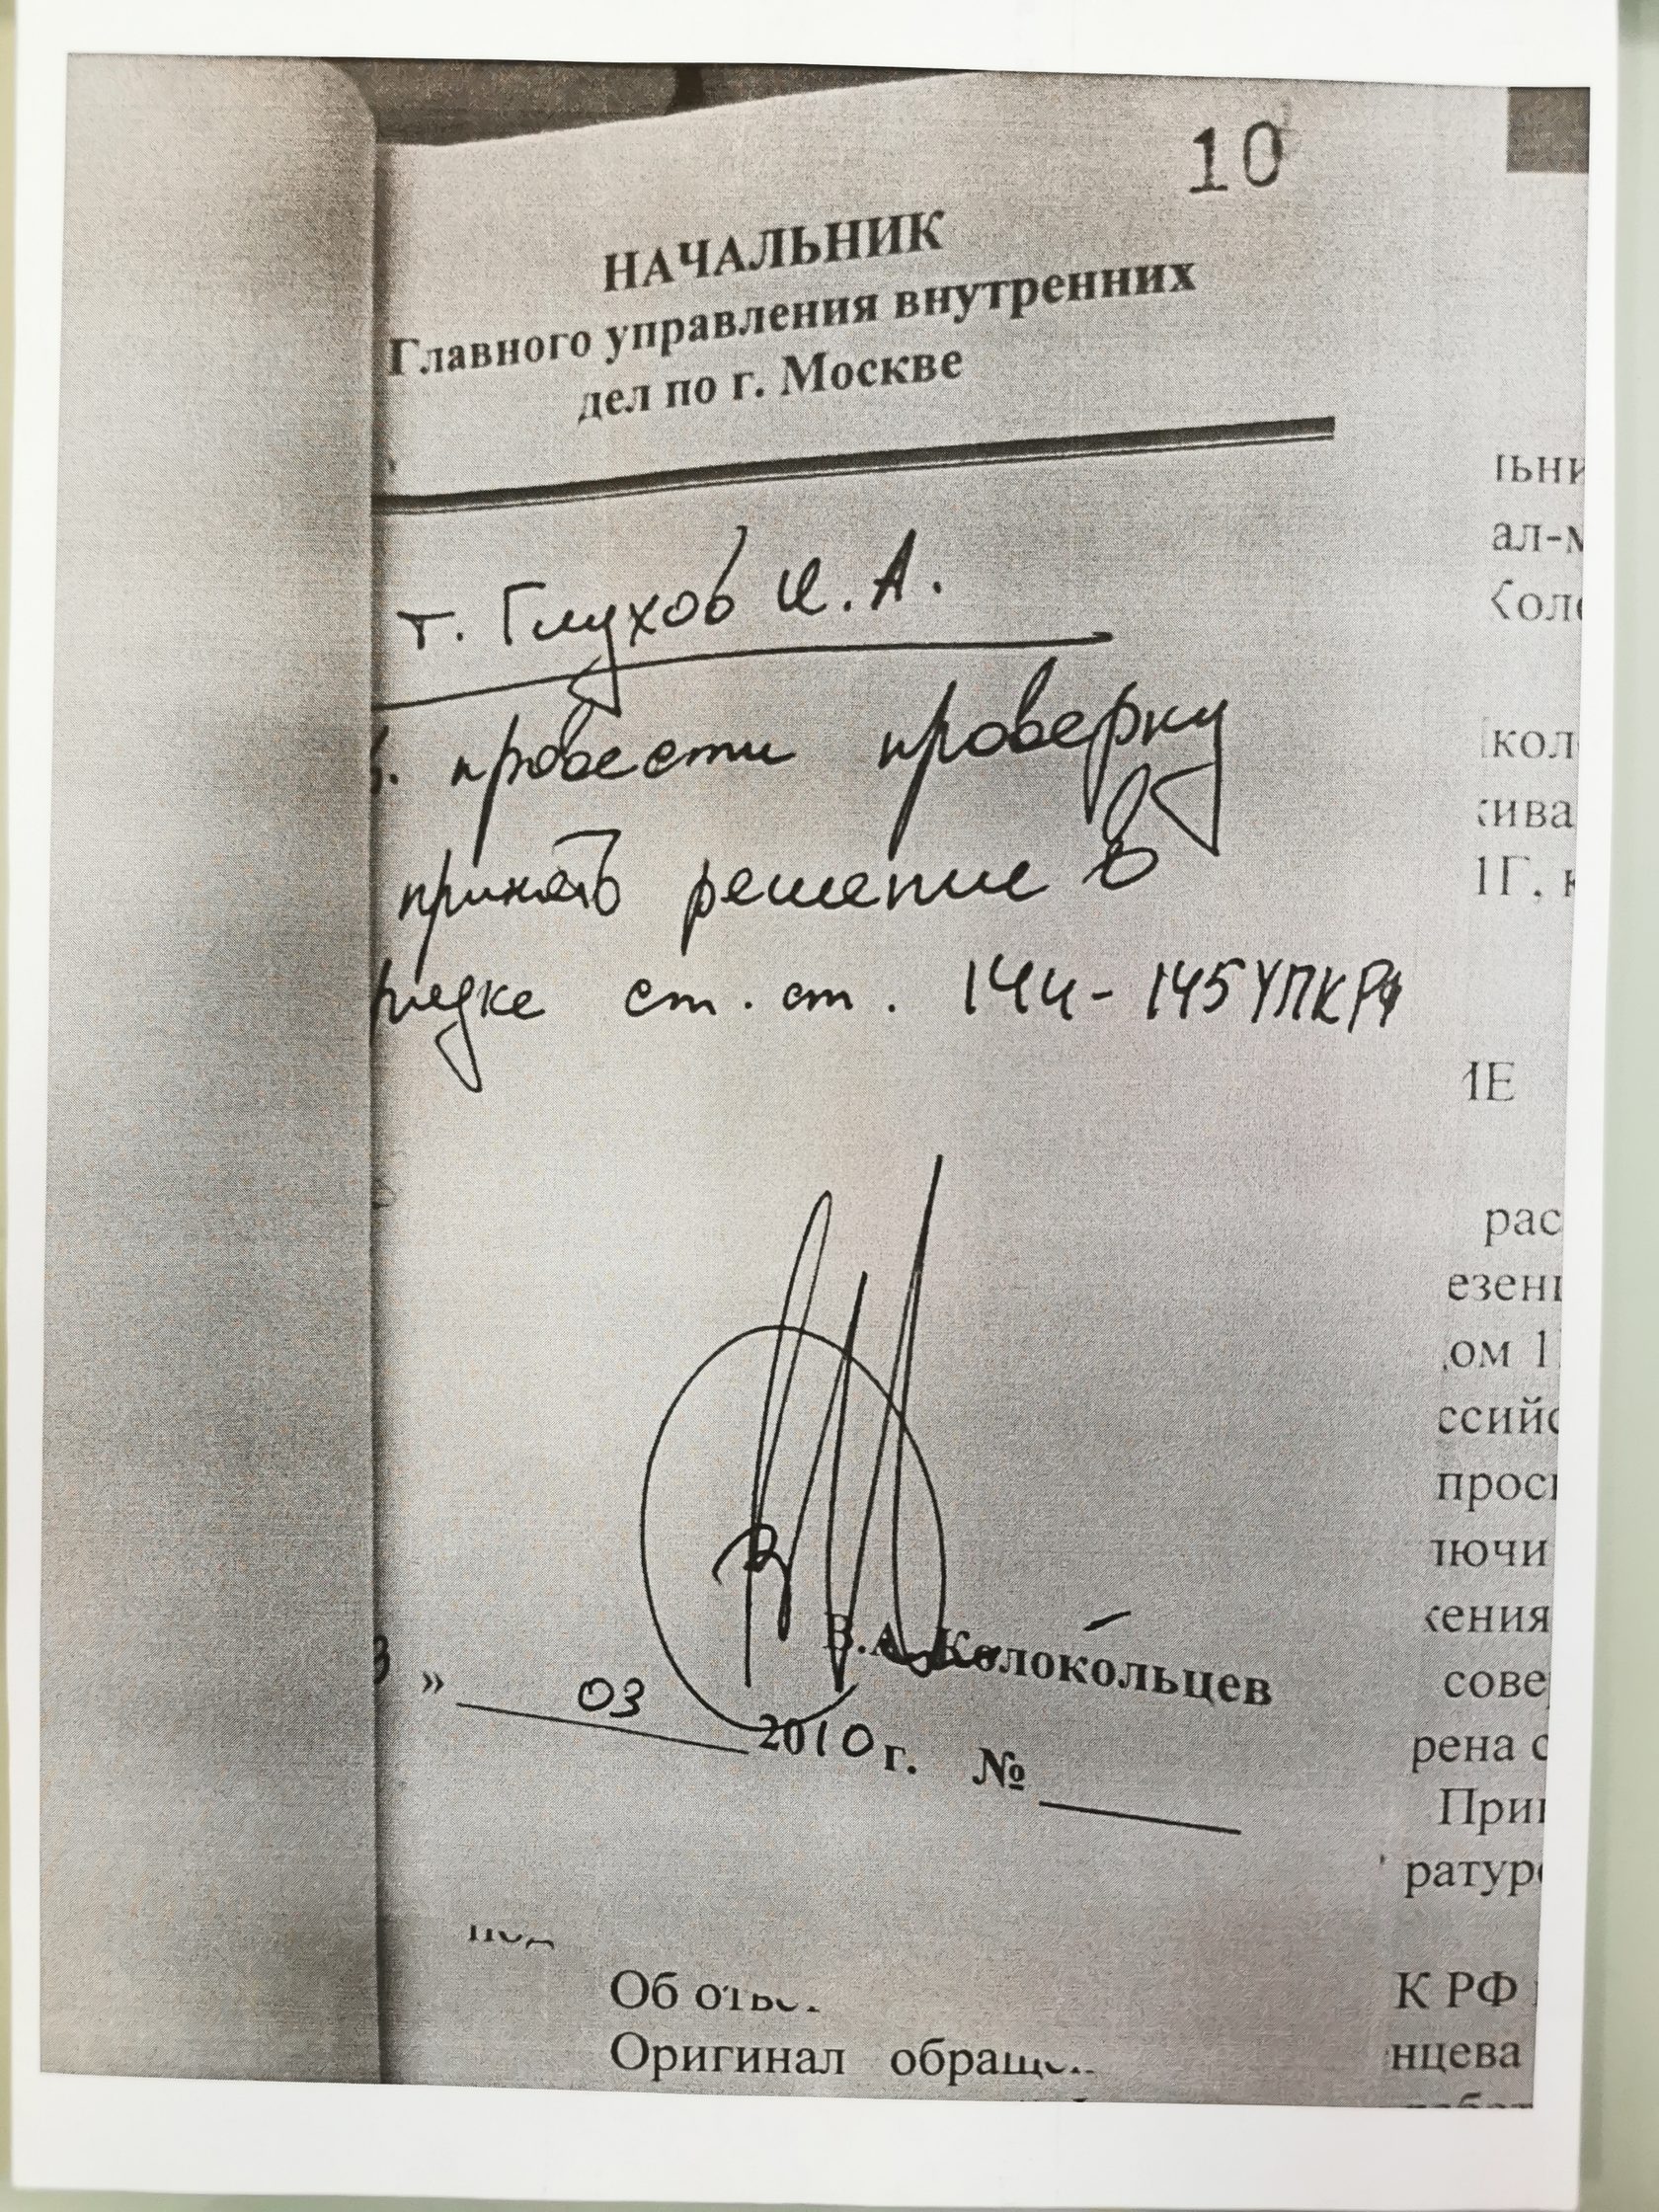 10
НАЧАЛЬНИК
Главного управления внутренних
дел по г. Москве
т. Глухов И.А.
провести проверку
принять решение в
рядке ст. ст. 144-145 УПК РФ
В.А. Колокольцев
3 » 03 2010 г. №
льни
ал-м
Коло
кол
жива
1Г, к
ИЕ
рас
езен
ом 1
ссийс
прос
лючи
жения
сове
рена с
При
рату
Об отве
К РФ
Оригинал обращ
нцева